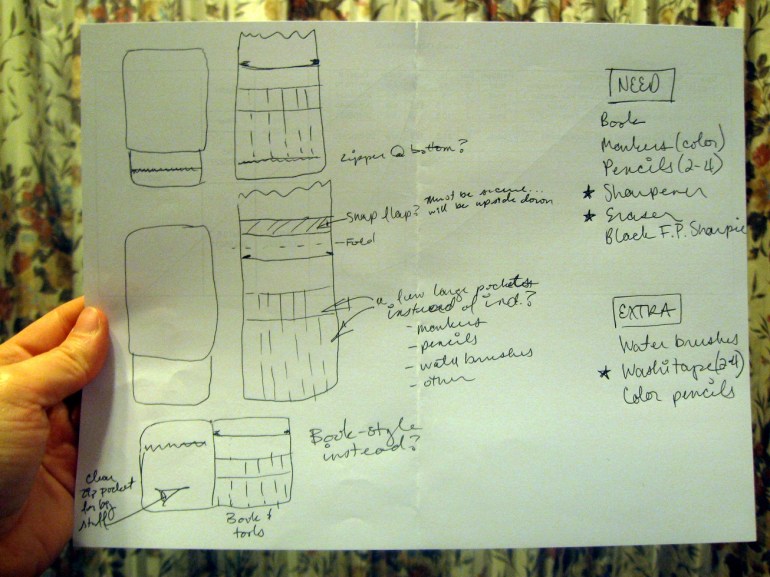 Zipper @ bottom?
Snap flap? Must be secure...
will be upside down
Fold
a few large pockets
instead of ind.?
- markers
- pencils
- water brushes
- other
Book-style
instead?
clear
zip pocket
for big
stuff
Book &
tools
NEED
Book
Markers (color)
Pencils (2-4)
★ Sharpener
★ Eraser
Black F.P. Sharpie
EXTRA
Water brushes
★ Washi tape (2-4)
Color pencils